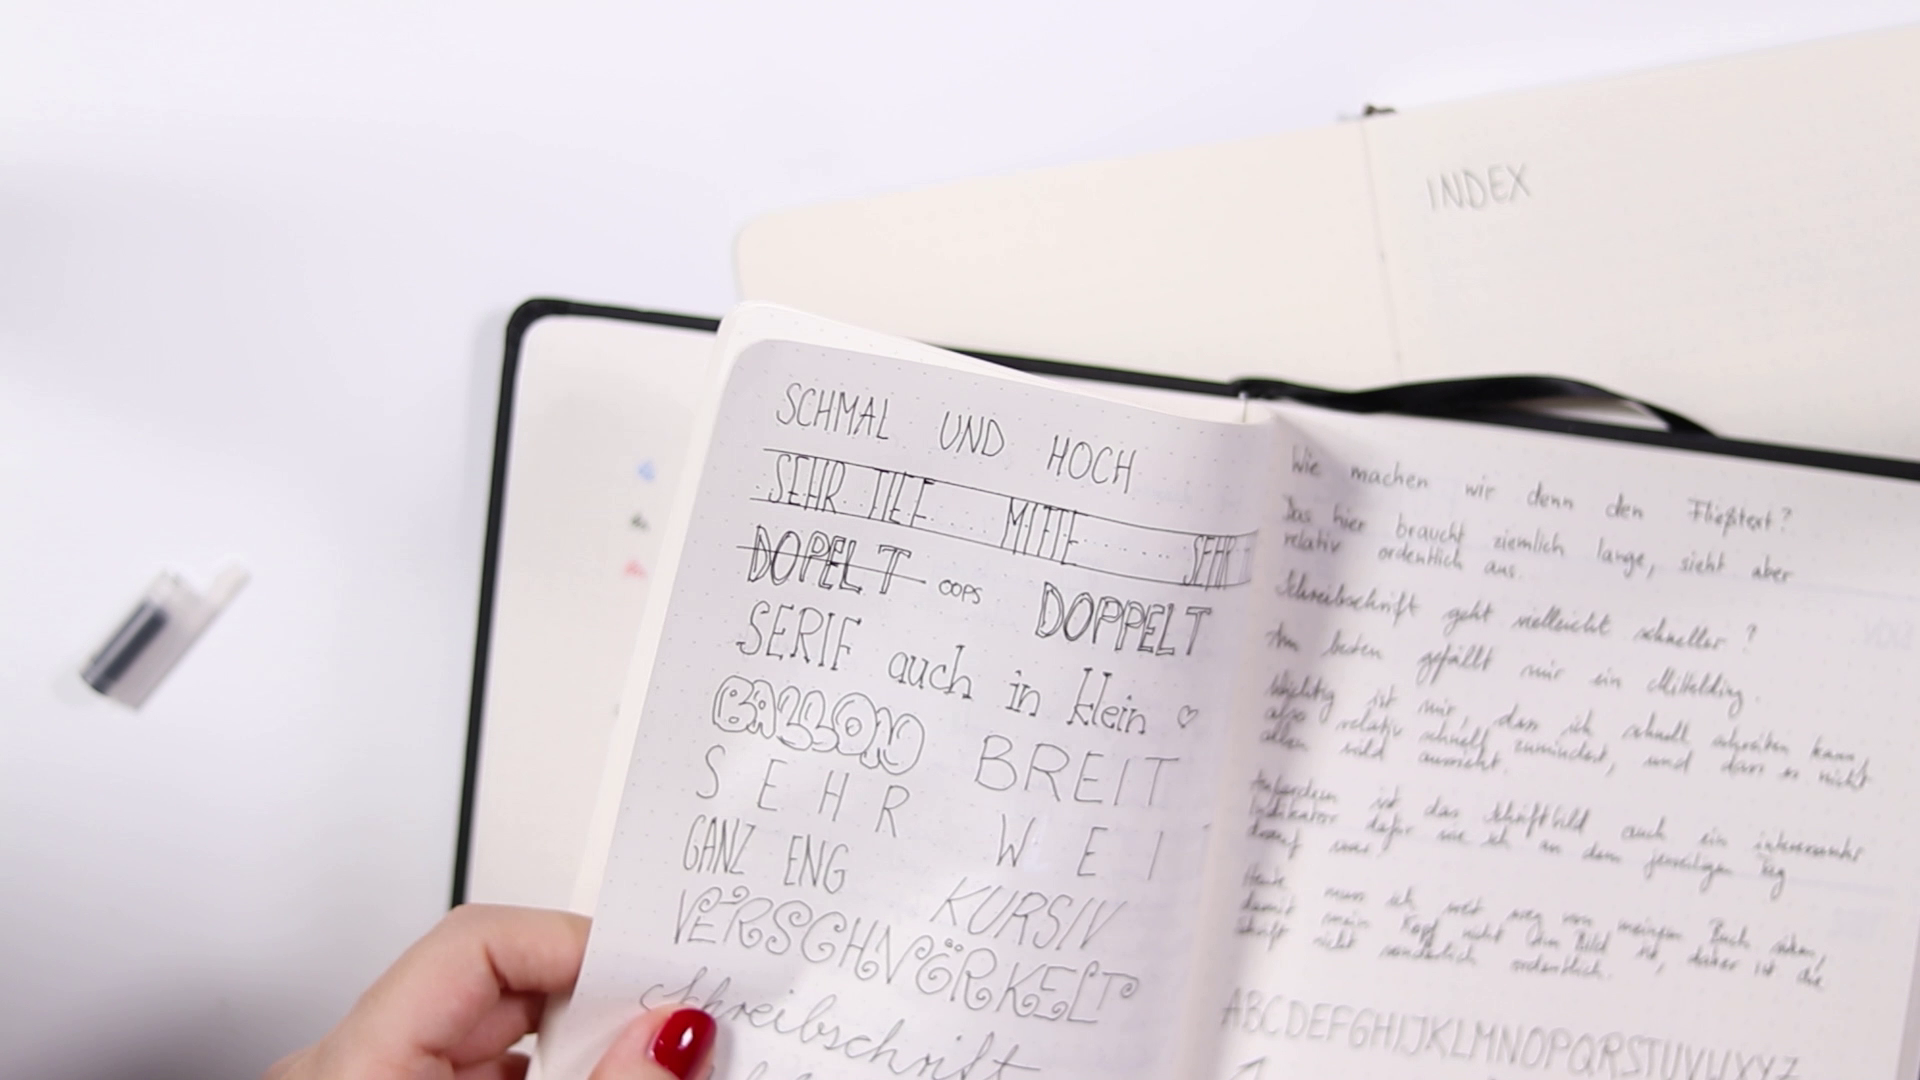 INDEX
SCHMAL UND HOCH
SEHR TIEF MITTE SEHR
DOPELT OOPS DOPPELT
SERIF auch in klein ♡
BALLON BREIT
SEHR WEI
GANZ ENG KURSIV
VERSCHNÖRKELT
Schreibschrift
Wie machen wir denn den Fließtext?
Das hier braucht ziemlich lange, sieht aber
relativ ordentlich aus.
Schreibschrift geht vielleicht schneller?
Am besten gefällt mir ein Mittelding.
Wichtig ist mir, dass ich schnell schreiben kann,
also relativ schnell zumindest, und dass es nicht
allzu wild aussieht.
Außerdem ist das Schriftbild auch ein interessanter
Indikator dafür wie ich an dem jeweiligen Tag
drauf war.
Heute muss ich weit weg von meinem Buch sitzen,
damit mein Kopf nicht im Bild ist, daher ist die
Schrift nicht sonderlich ordentlich.
ABCDEFGHIJKLMNOPQRSTUVWXYZ